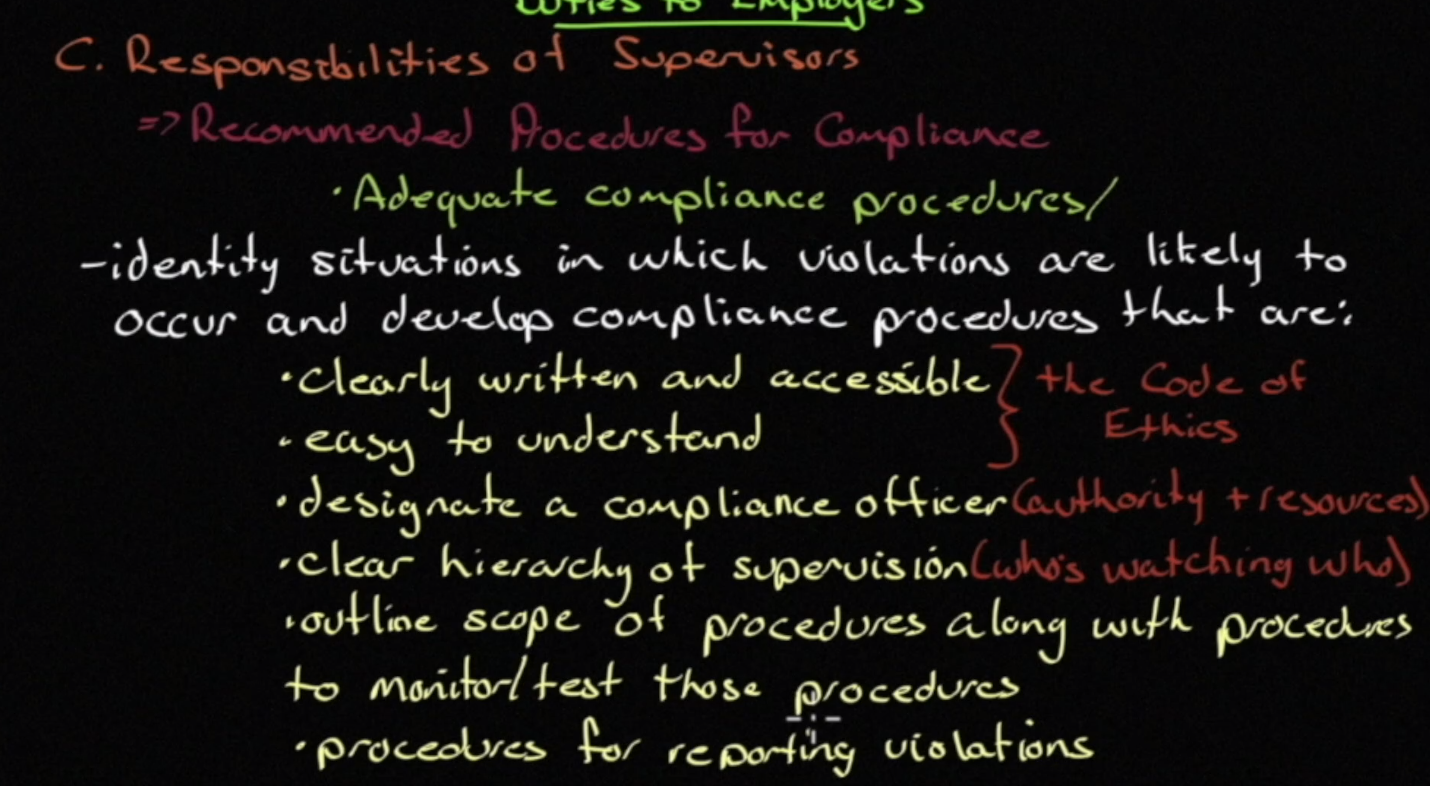 Duties to Employers
C. Responsibilities of Supervisors
=> Recommended Procedures for Compliance
· Adequate compliance procedures/
- identity situations in which violations are likely to
occur and develop compliance procedures that are:
· clearly written and accessible } the Code of
· easy to understand Ethics
· designate a compliance officer (authority + resources)
· clear hierarchy of supervision (who's watching who)
· outline scope of procedures along with procedures
to monitor/test those procedures
· procedures for reporting violations